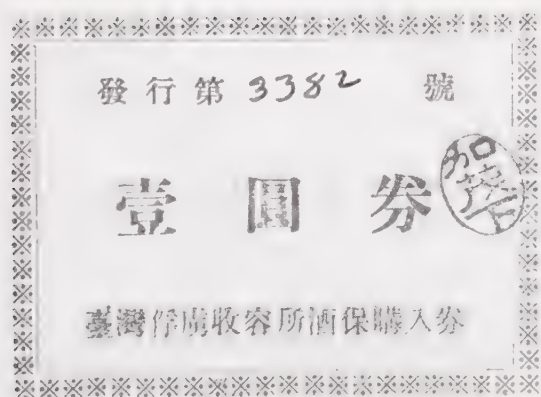 發行第 3382 號
壹圓券
臺灣俘虜收容所酒保購入券